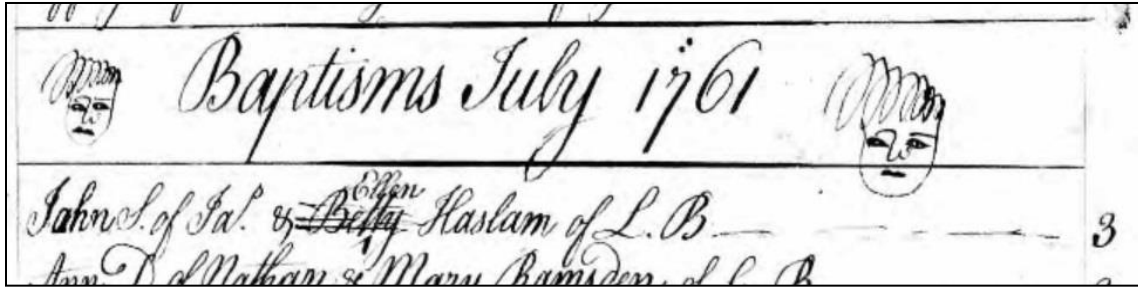 Baptisms July 1761
Ellen
John S. of Ja.s & Betty Haslam of L. B. 3
Ann D. of Nathan & Mary Ramsden of L. B.